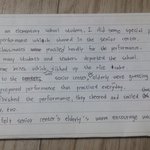 an elementary school student, I did some special p
performance which showed in the senior center.
classmates were practiced hardly for the performance.
many students and teachers departed the school.
some buses which picked up the
to the senior center, senior center elderly were greeting
prepared performance that practiced everyday.
finished the performance, they cheered and smiled
senior center's elderly's warm encourage